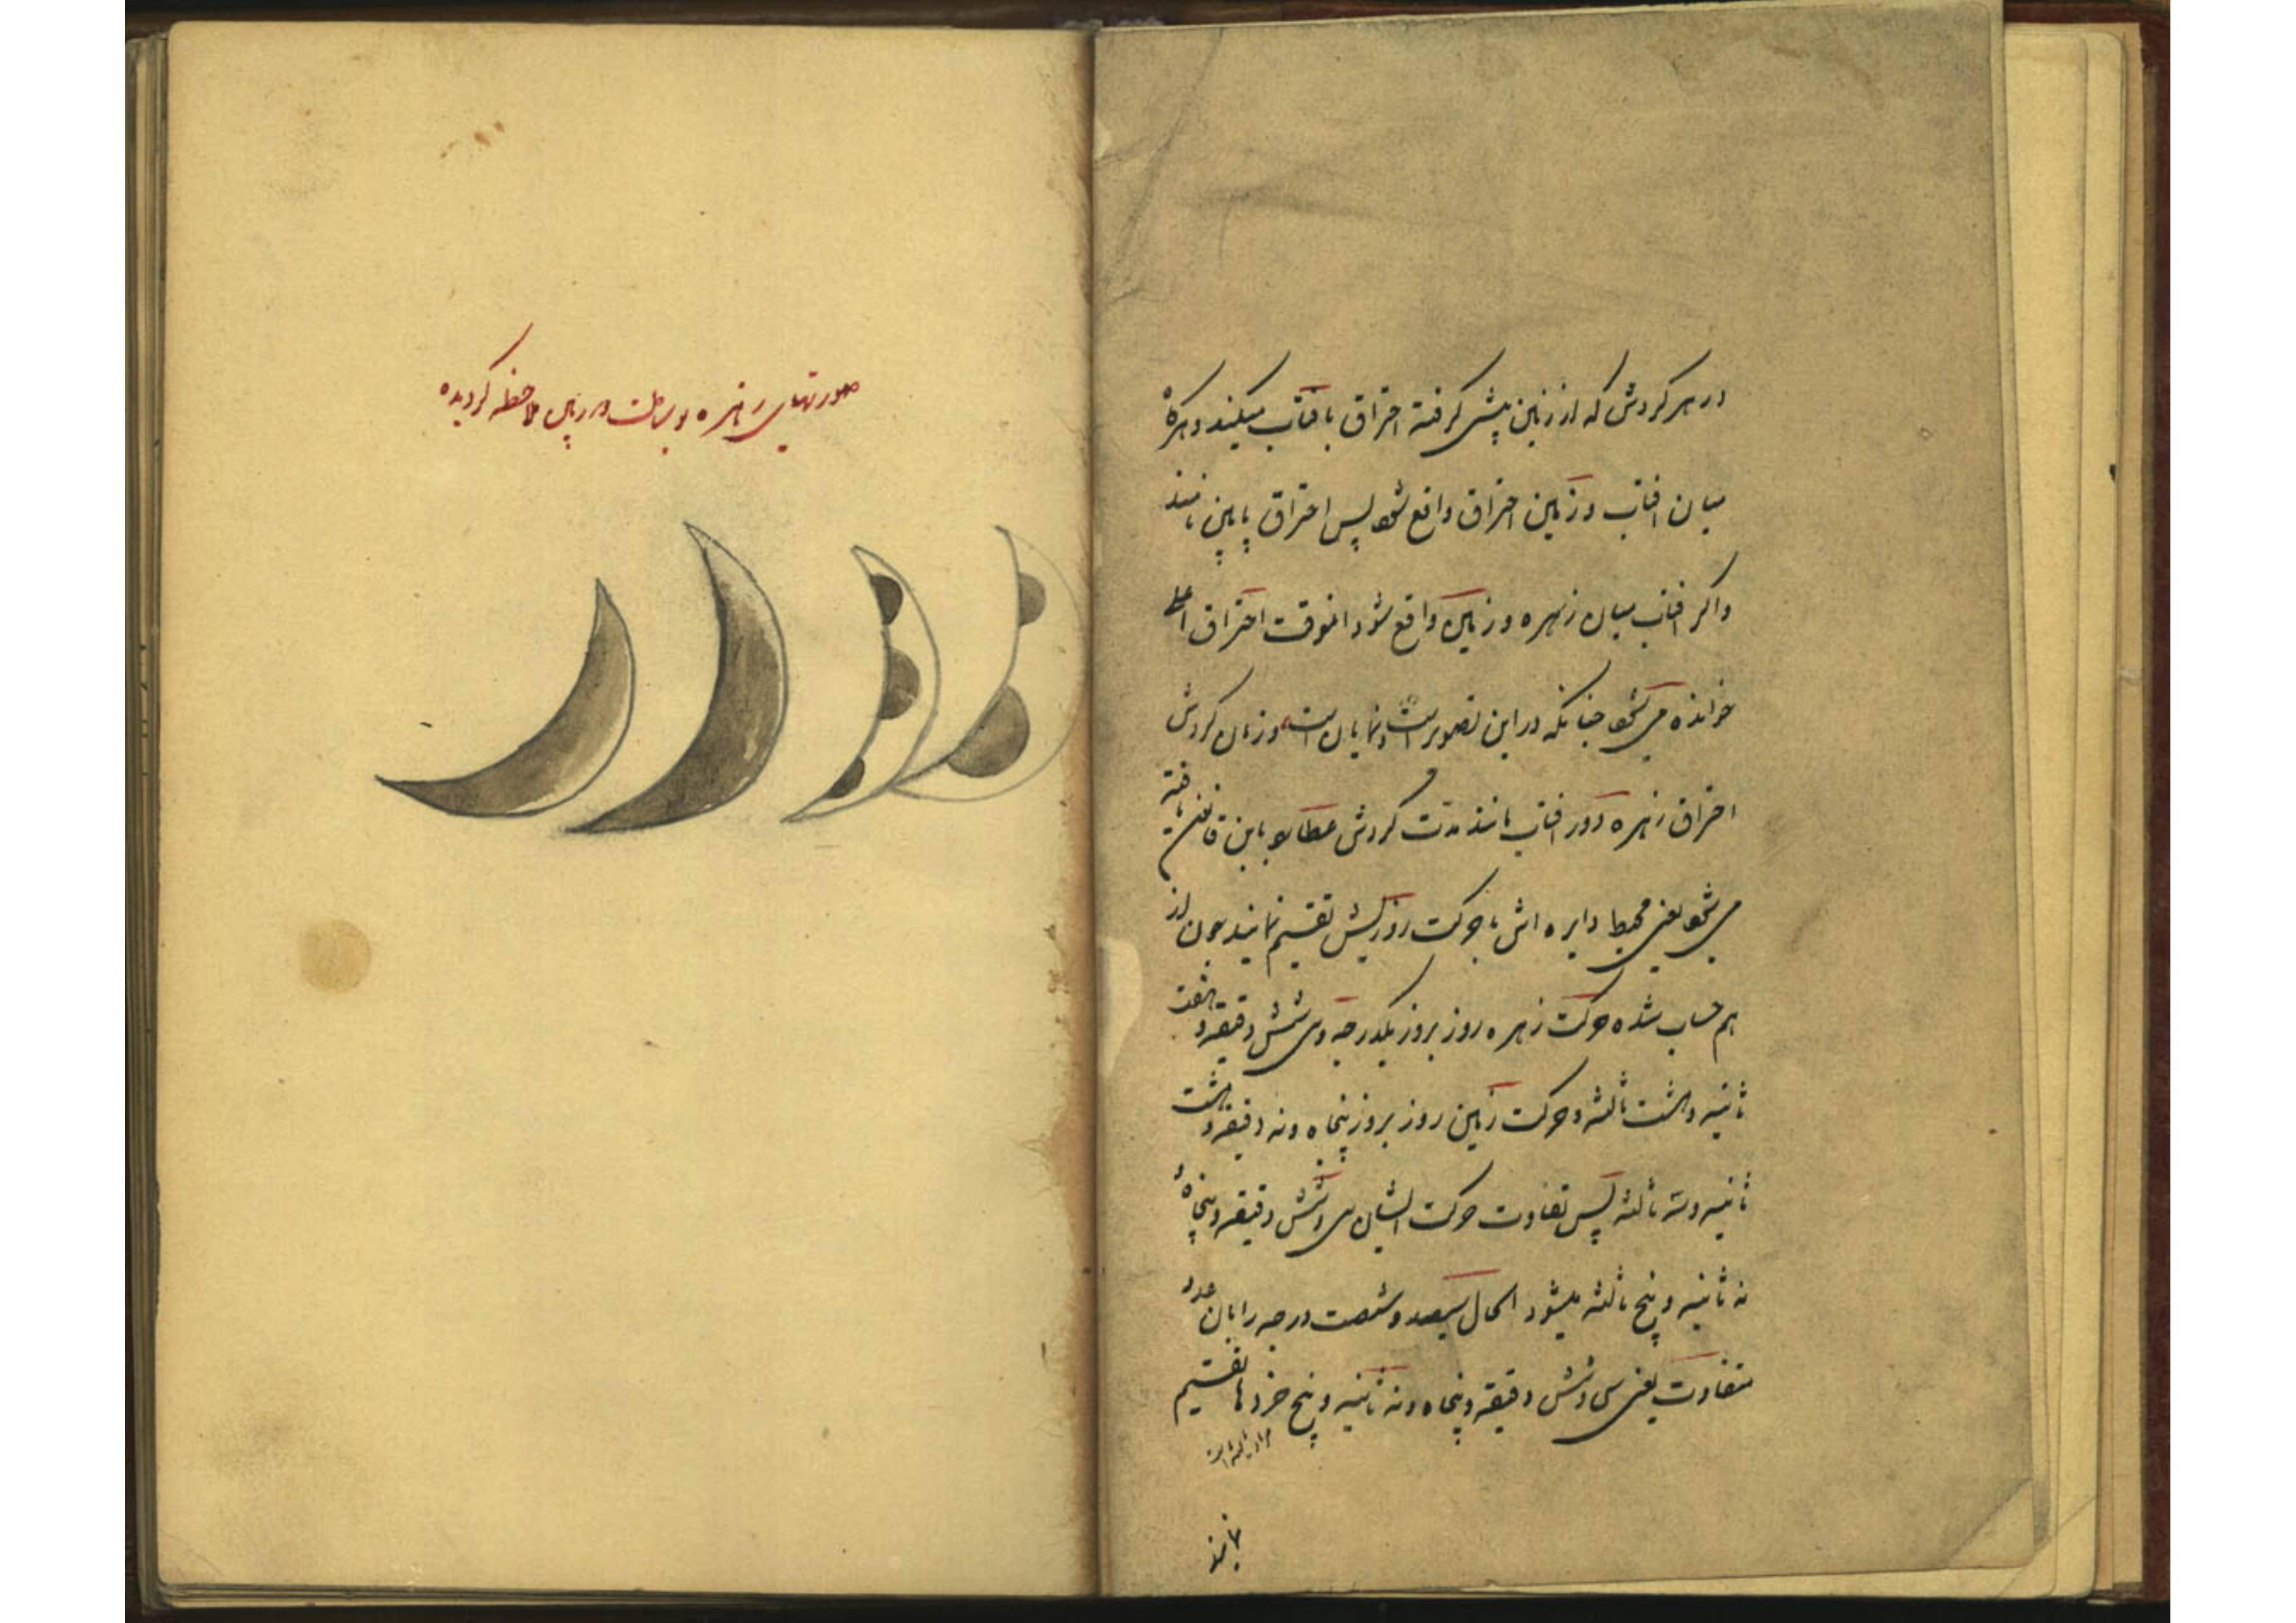 در هر گردش که از زمین پیش گرفته احتراق بافتاب میکند و هرگاه
میان افتاب و زمین احتراق واقع شود پس احتراق پایین نامند
واگر افتاب میان زهره و زمین واقع شود انوقت احتراق اعلی
خوانده می شود چنانکه در این تصویرات نمایان است و زمان گردش
احتراق زهره دور افتاب مانند مدت گردش عطارد باین قانون یافته
می شود یعنی محیط دایره اش با حرکت روزیش تقسیم نمایند چون از
هم حساب شده حرکت زهره روز بروز یکدرجه و سی شش دقیقه و هفت
ثانیه و هشت ثالثه و حرکت زمین روز بروز پنجاه و نه دقیقه و هشت
ثانیه و سه ثالثه پس تفاوت حرکت ایشان سی و شش دقیقه و پنجاه و
نه ثانیه و پنج ثالثه میشود الحال سیصد و شصت درجه را بان عدد
متفاوت یعنی سی و شش دقیقه و پنجاه و نه ثانیه و پنج خردها تقسیم
مراد ثالثه است
نمایند
صورتهای زهره بوساطت دوربین ملاحظه گردیده